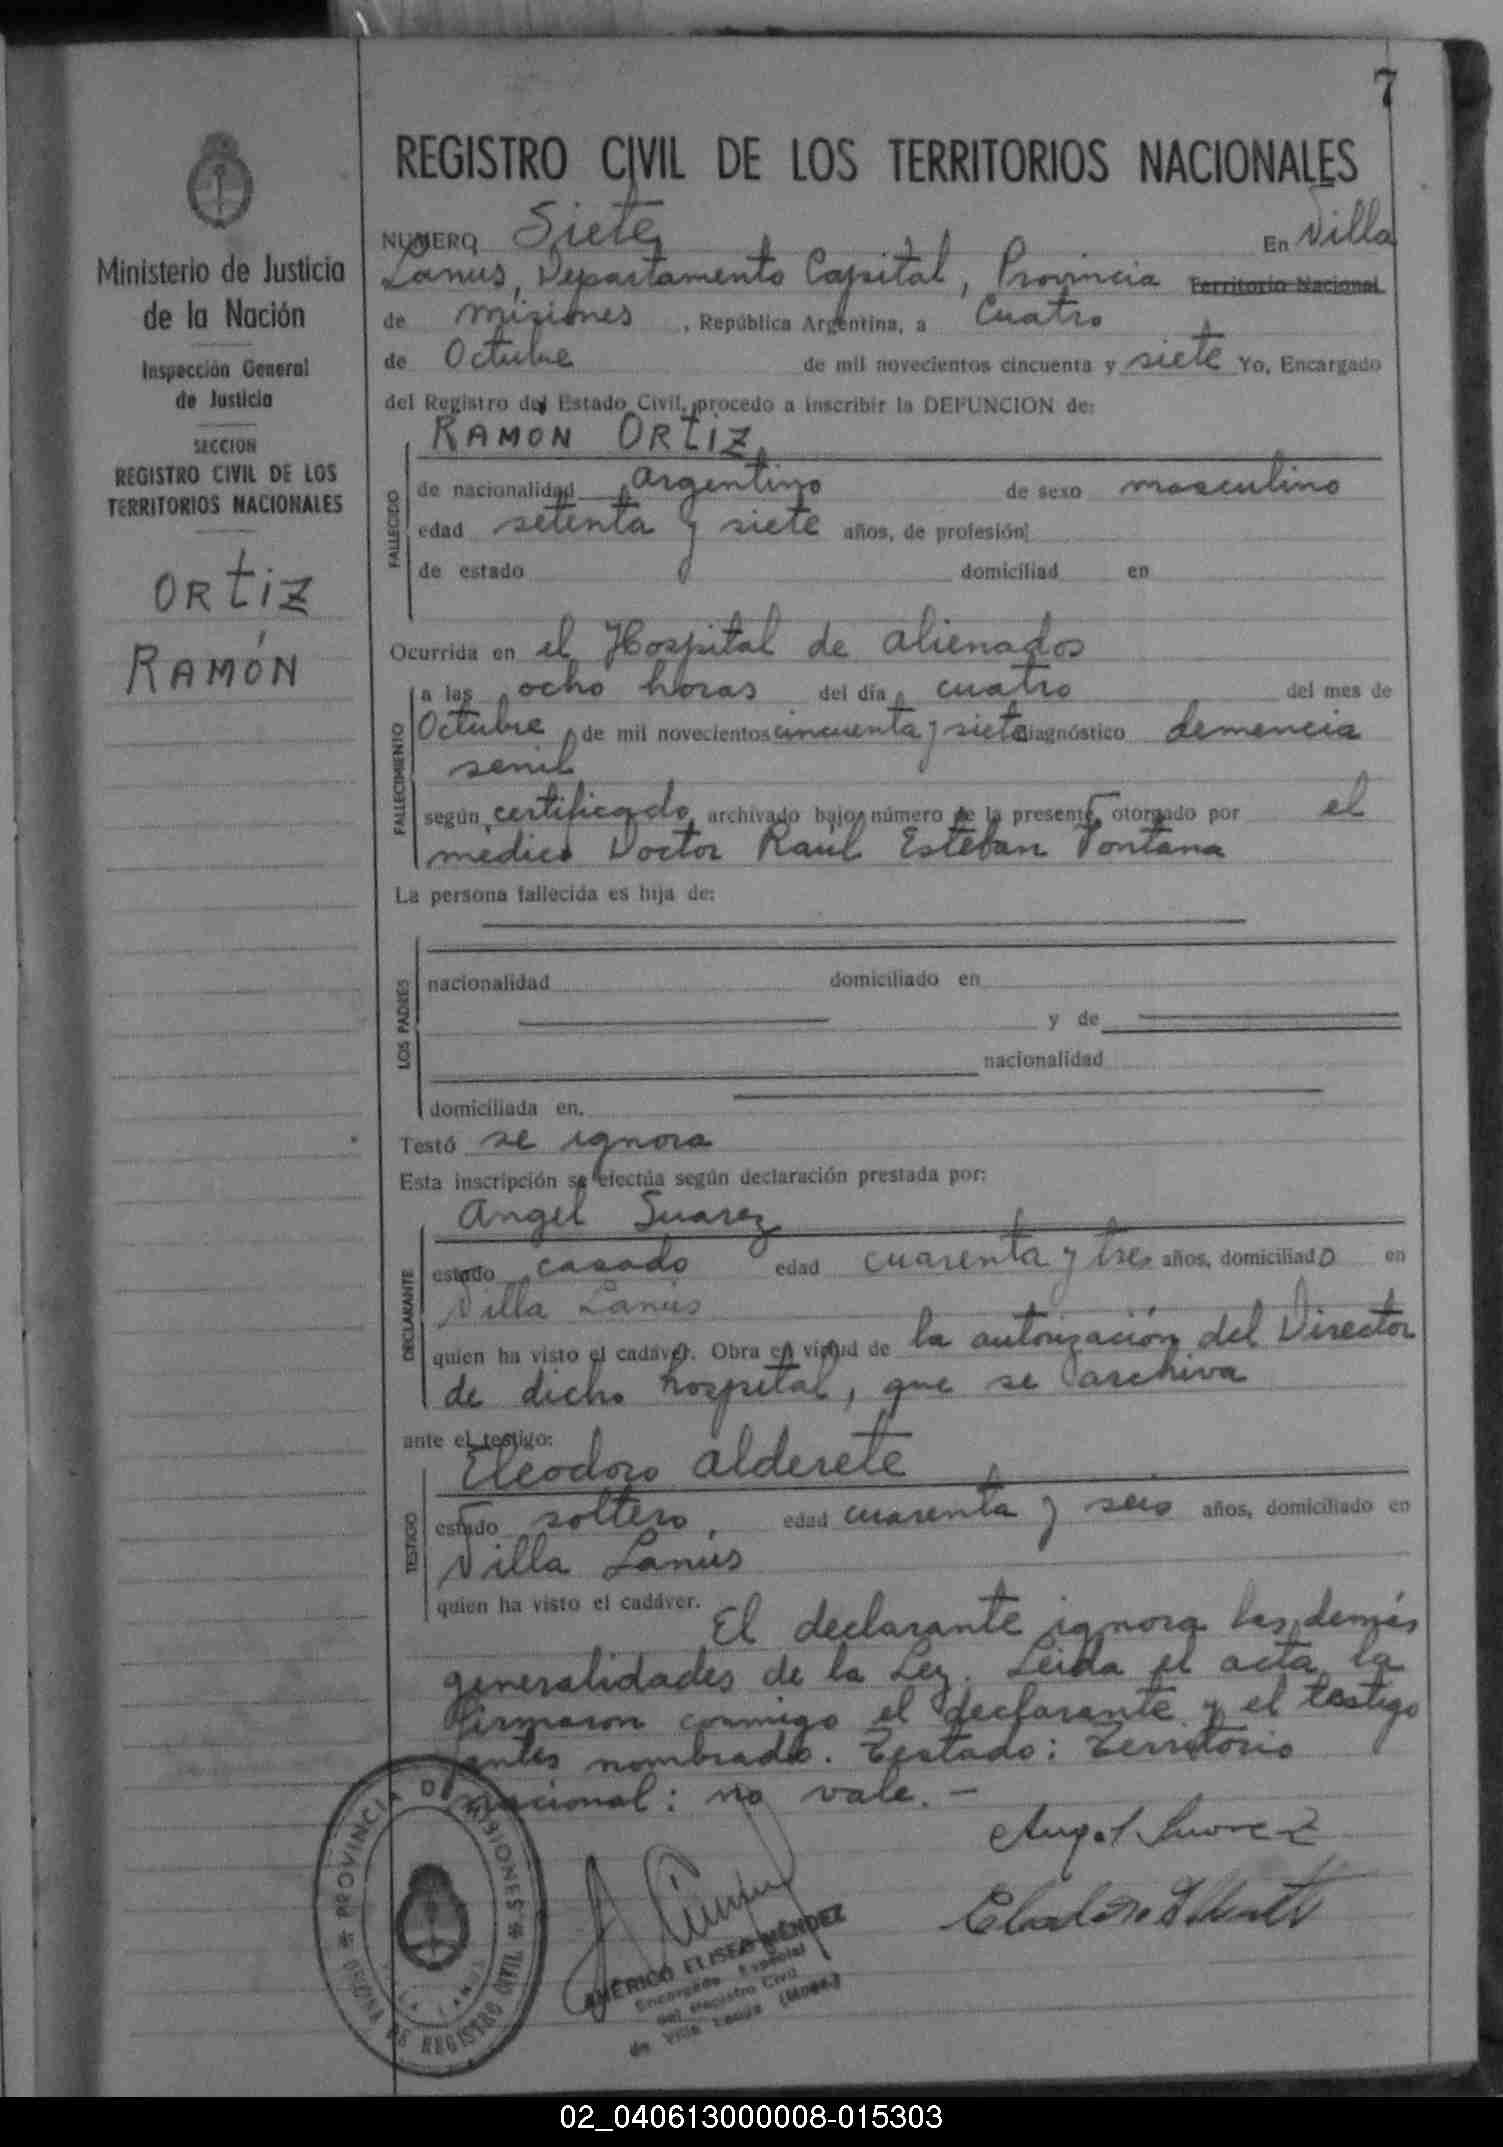 7
REGISTRO CIVIL DE LOS TERRITORIOS NACIONALES
Ministerio de Justicia
de la Nación
Inspección General
de Justicia
SECCION
REGISTRO CIVIL DE LOS
TERRITORIOS NACIONALES
ORtiZ
RAMÓN
NUMERO Siete En Villa
Lanus, Departamento Capital, Provincia Territorio Nacional
de misiones, República Argentina, a Cuatro
de Octubre de mil novecientos cincuenta y siete Yo, Encargado
del Registro del Estado Civil, procedo a inscribir la DEFUNCION de:
RAMON ORtiZ
FALLECIDO
de nacionalidad argentino de sexo masculino
edad setenta y siete años, de profesión
de estado domiciliad en
Ocurrida en el Hospital de alienados
FALLECIMIENTO
a las ocho horas del día cuatro del mes de
Octubre de mil novecientos cincuenta y siete diagnóstico demencia
senil
según certificado archivado bajo número de la presente, otorgado por el
medico Doctor Raúl Esteban Fontana
La persona fallecida es hija de:
LOS PADRES
nacionalidad domiciliado en
y de
nacionalidad
domiciliada en
Testó se ignora
Esta inscripción se efectúa según declaración prestada por:
Angel Suarez
DECLARANTE
estado casado edad cuarenta y tres años, domiciliado en
Villa Lanús
quien ha visto el cadáver. Obra en virtud de la autorización del Director
de dicho hospital, que se archiva
ante el testigo:
Eleodoro alderete
TESTIGO
estado soltero, edad cuarenta y seis años, domiciliado en
Villa Lanús
quien ha visto el cadáver. El declarante ignora las demás
generalidades de la Ley. Leida el acta, la
firmaron conmigo el declarante y el testigo
antes nombrado. Testado: Territorio
nacional: no vale. -
Angel Suarez
PROVINCIA DE MISIONES
OFICINA DE REGISTRO CIVIL
VILLA LANUS
AMÉRICO ELISEO MÉNDEZ
Encargado Especial
del Registro Civil
de Villa Lanús (Mnes.)
02_040613000008-015303